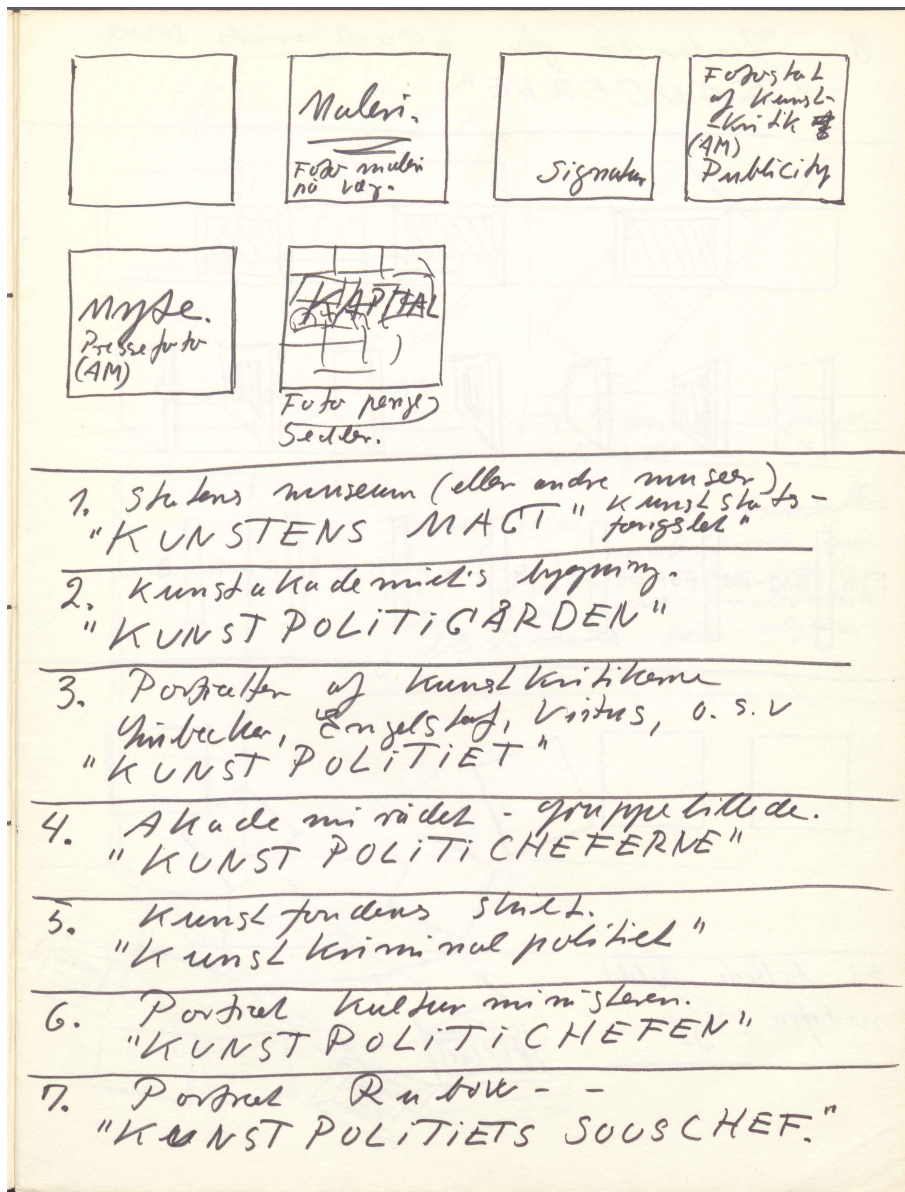 Maleri.
Foto maleri
på væg.
Signatur
Fotostat
af kunst-
-kritik
(AM)
Publicity
Myte.
Pressefoto
(AM)
KAPITAL
Foto penge
sedler.
1. Statens museum (eller andre museer)
"KUNSTENS MAGT" "Kunst stats-
fængslet"
2. Kunstakademiets bygning.
"KUNST POLITIGÅRDEN"
3. Portrætter af kunstkritikerne
Engelstoft, Vitus, o.s.v
"KUNST POLITIET"
4. Akademirådet - gruppebillede.
"KUNST POLITICHEFERNE"
5. Kunstfondens skilt.
"Kunst kriminal politiet"
6. Portræt kulturministeren.
"KUNST POLITICHEFEN"
7. Portræt Rubow - -
"KUNST POLITIETS SOUSCHEF."